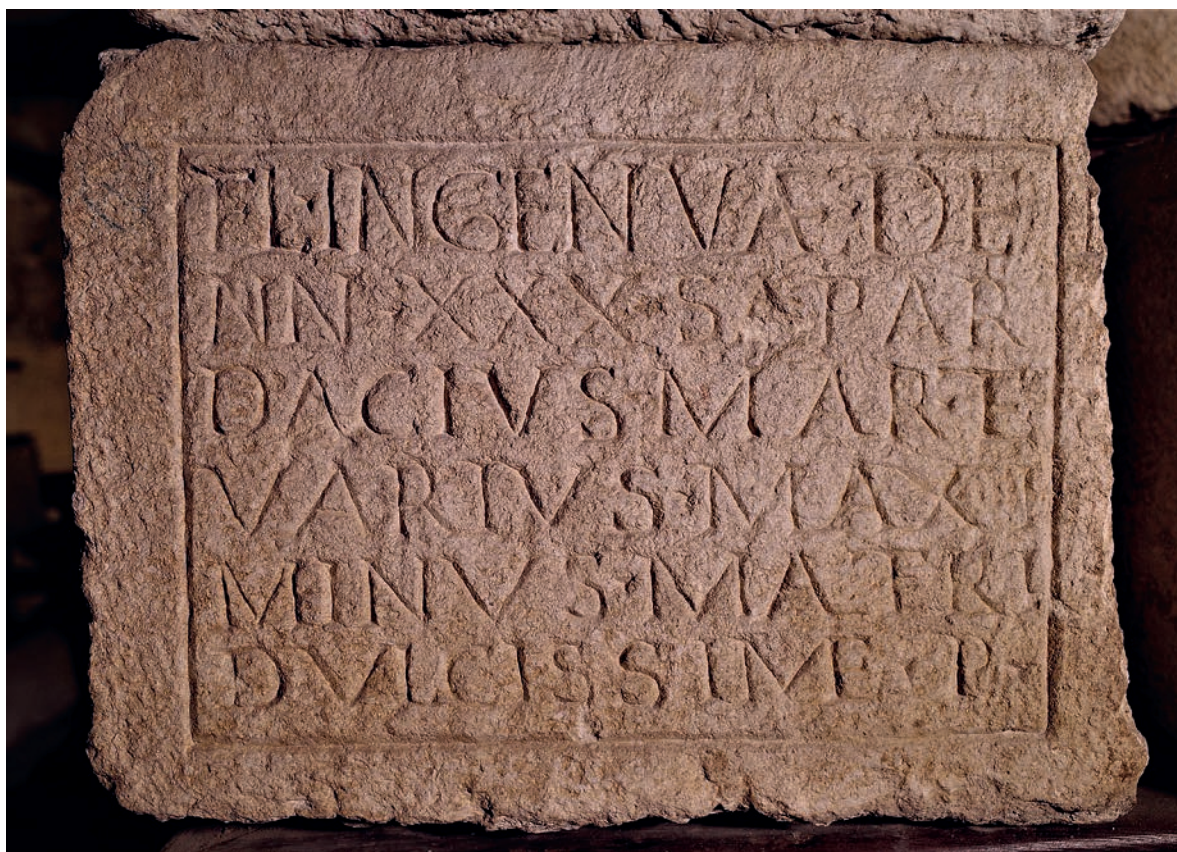 FL·INGENVAE·DE
NN·XXX·S·A·PAR
DACIVS·MARE
VARIVS·MAXI
MINVS·MATRI
DVLCISSIME·P·